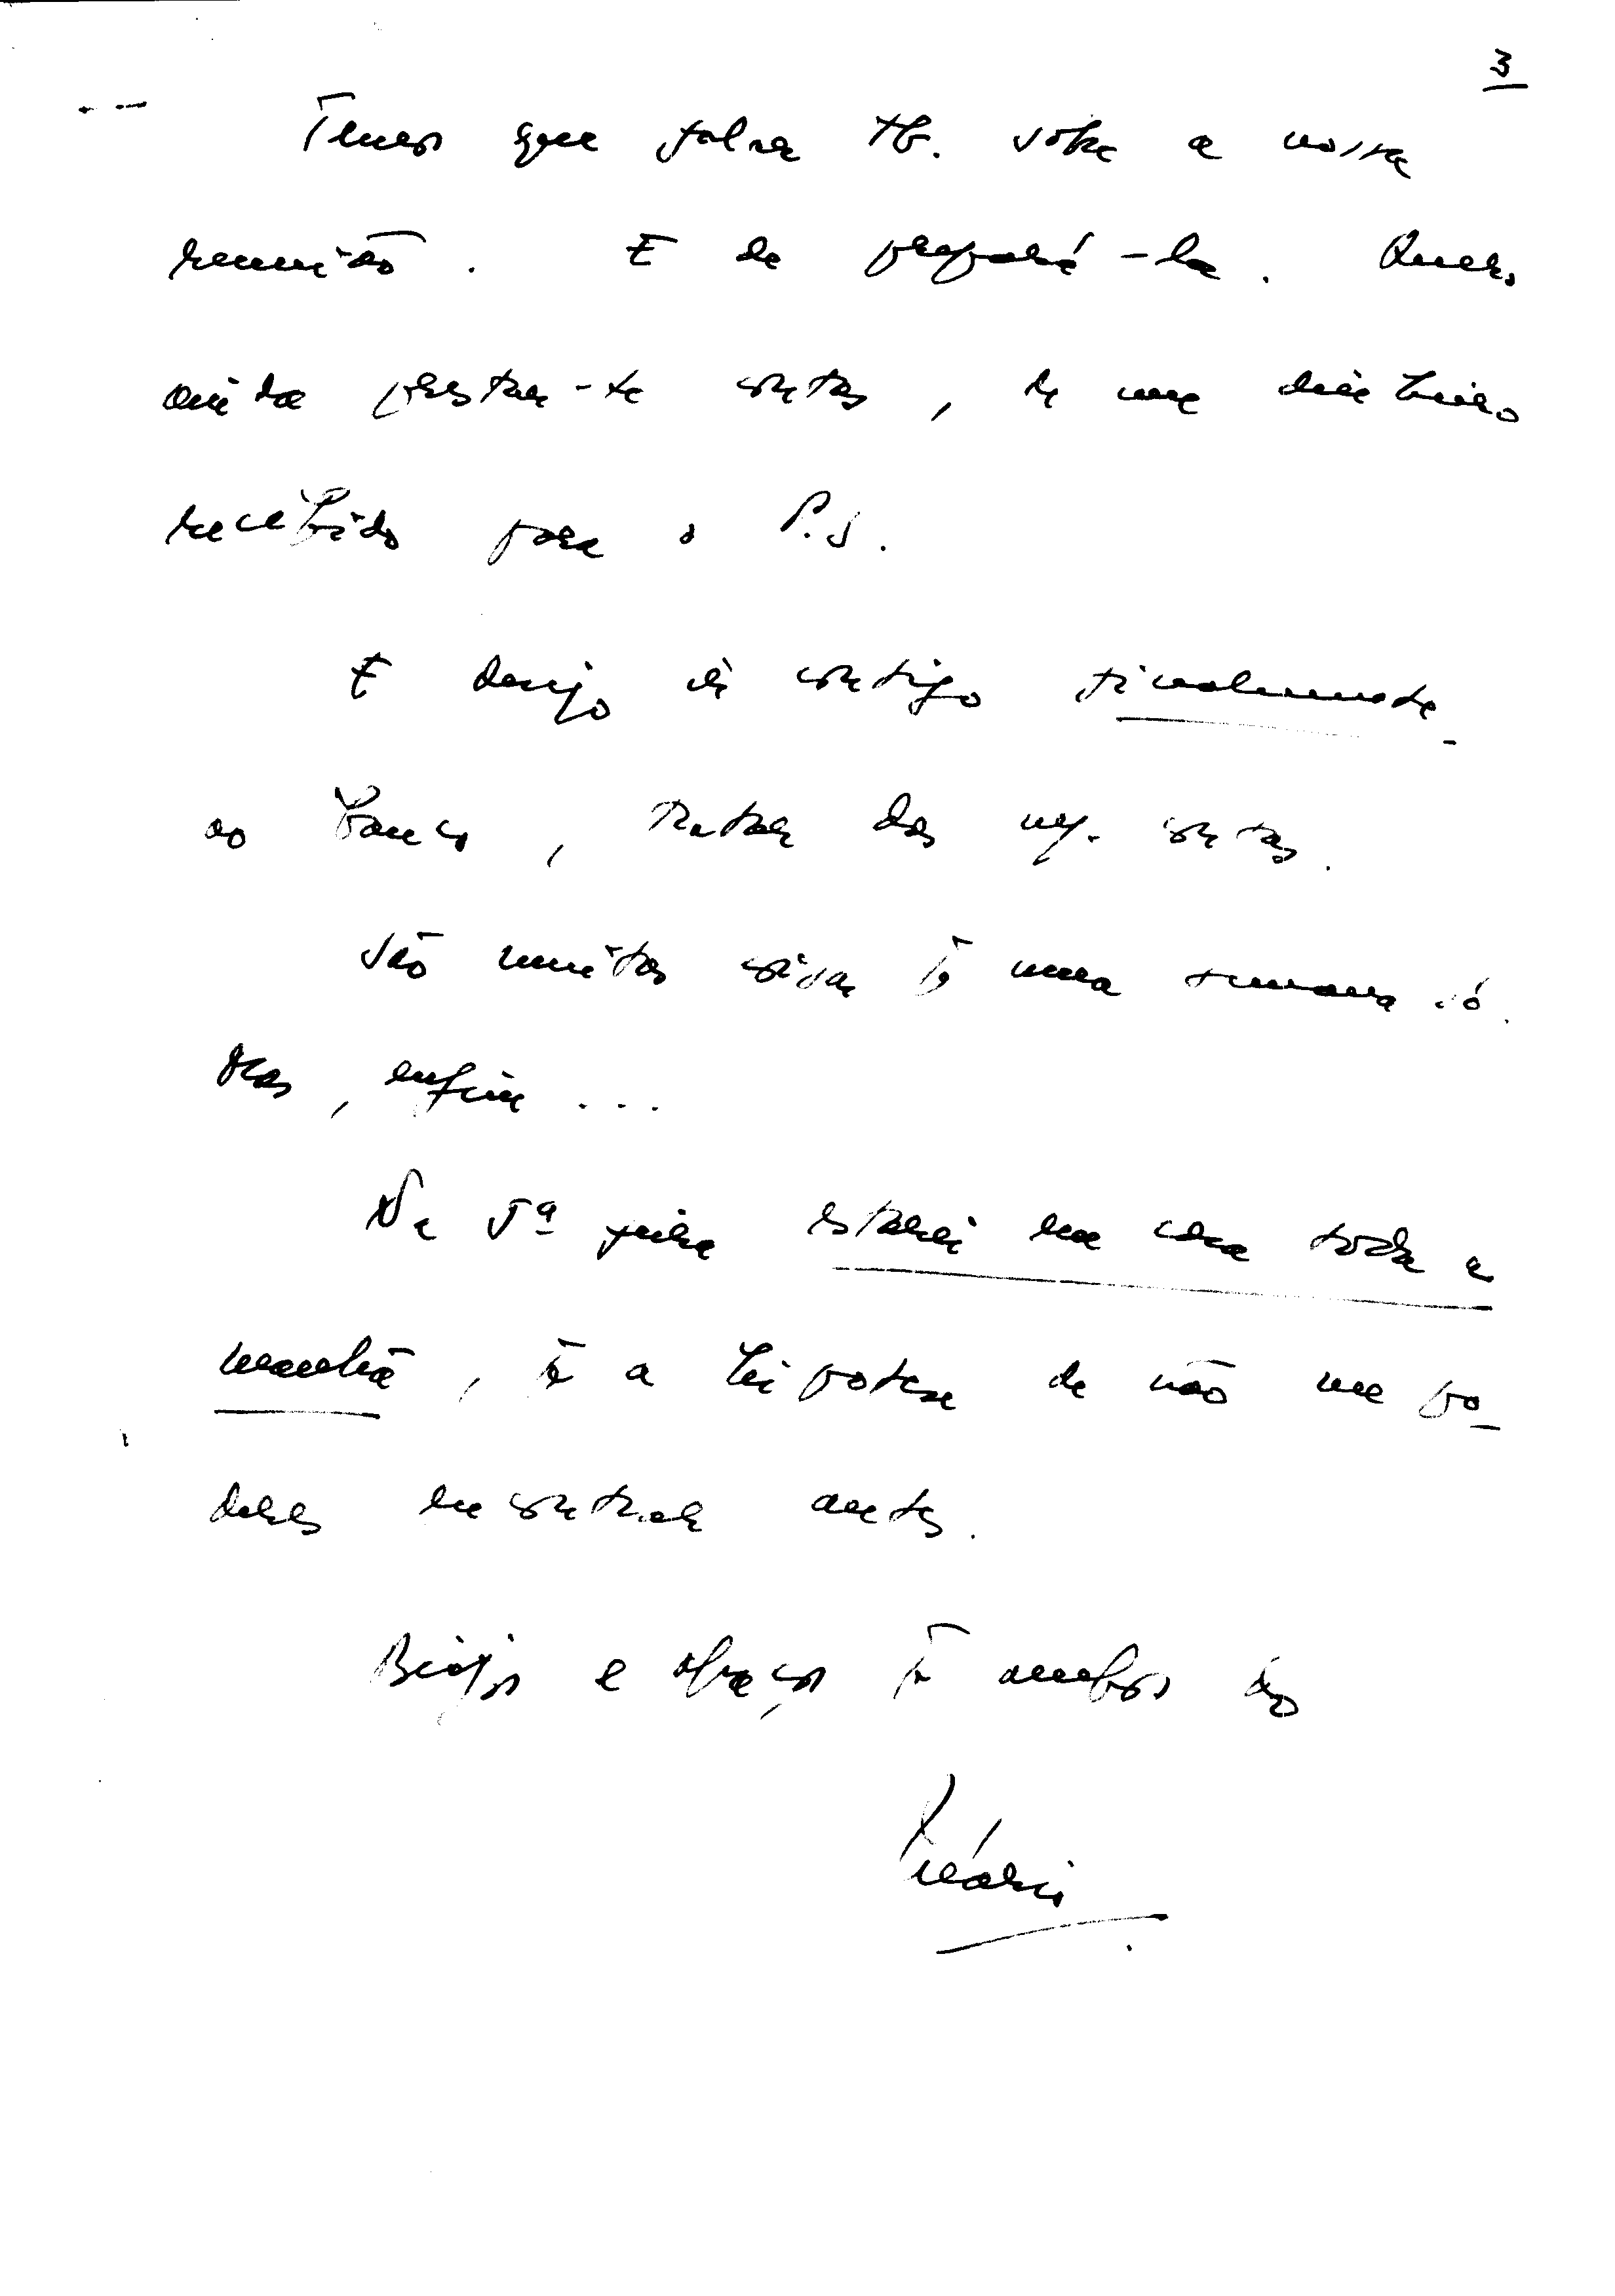 3
Temos que falar tb. sobre a nossa
reunião. E de prepará-la. Quero
ainda prestar-te contas, de um dinheiro
recebido para o P.S.
E desejo ir contigo finalmente
ao banco, tratar das contas.
São muitas coisas p̄ uma semana só.
Mas, enfim...
Na 5ª feira estarei em casa toda a
manhã, p̄ a hipotese de não me po-
deres encontrar antes.
Beijos e abraços p̄ ambos do
Mário